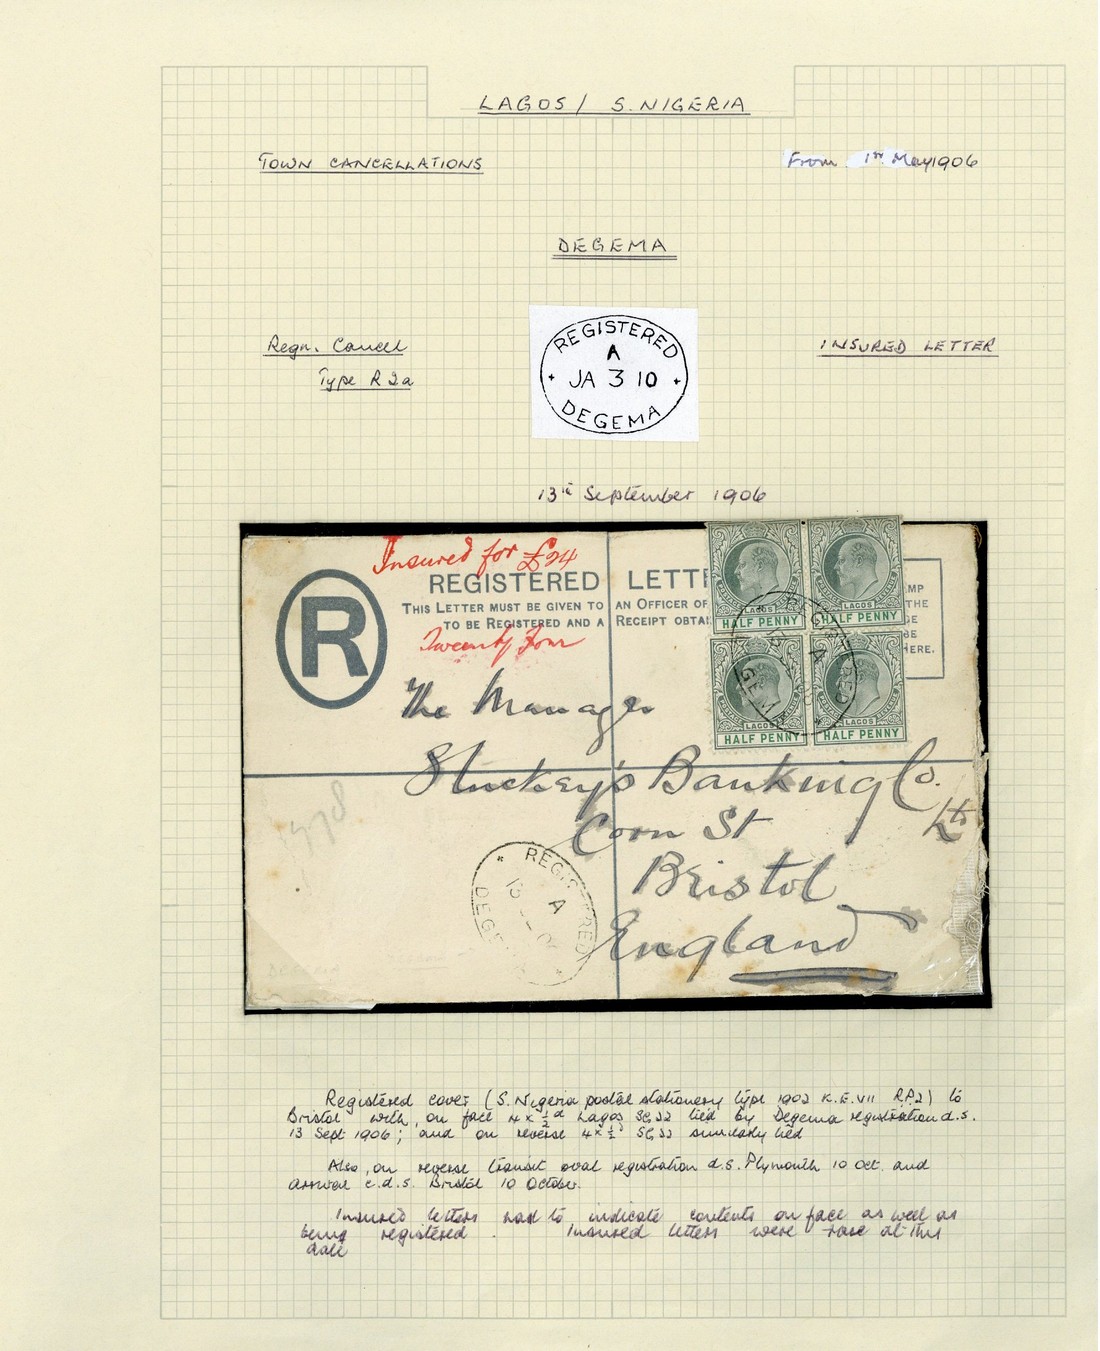 LAGOS / S. NIGERIA
TOWN CANCELLATIONS
From 1st May 1906
DEGEMA
Regn. Cancel
Type R 2a
REGISTERED
A
JA 3 10
DEGEMA
INSURED LETTER
13th September 1906
Insured for £24
REGISTERED LETT
THIS LETTER MUST BE GIVEN TO AN OFFICER OF
TO BE REGISTERED AND A RECEIPT OBTAI
Twenty Four
R
AMP
THE
GE
BE
HERE.
LAGOS
HALF PENNY
LAGOS
HALF PENNY
LAGOS
HALF PENNY
LAGOS
HALF PENNY
REGISTERED
A
13
GEM
The Manager
Stuckey's Banking Co.
Ltd
Corn St
Bristol
England
REGISTERED
A
13 06
DEGE
Registered cover (S. Nigeria postal stationery type 1902 K.E.VII R.P.2) to
Bristol with, on face 4 x ½d Lagos SG 22 tied by Degema registration d.s.
13 Sept 1906; and on reverse 4 x ½d SG 22 similarly tied
Also, on reverse transit oval registration d.s. Plymouth 10 Oct. and
arrival c.d.s. Bristol 10 October.
Insured letters had to indicate contents on face as well as
being registered. Insured letters were rare at this
date